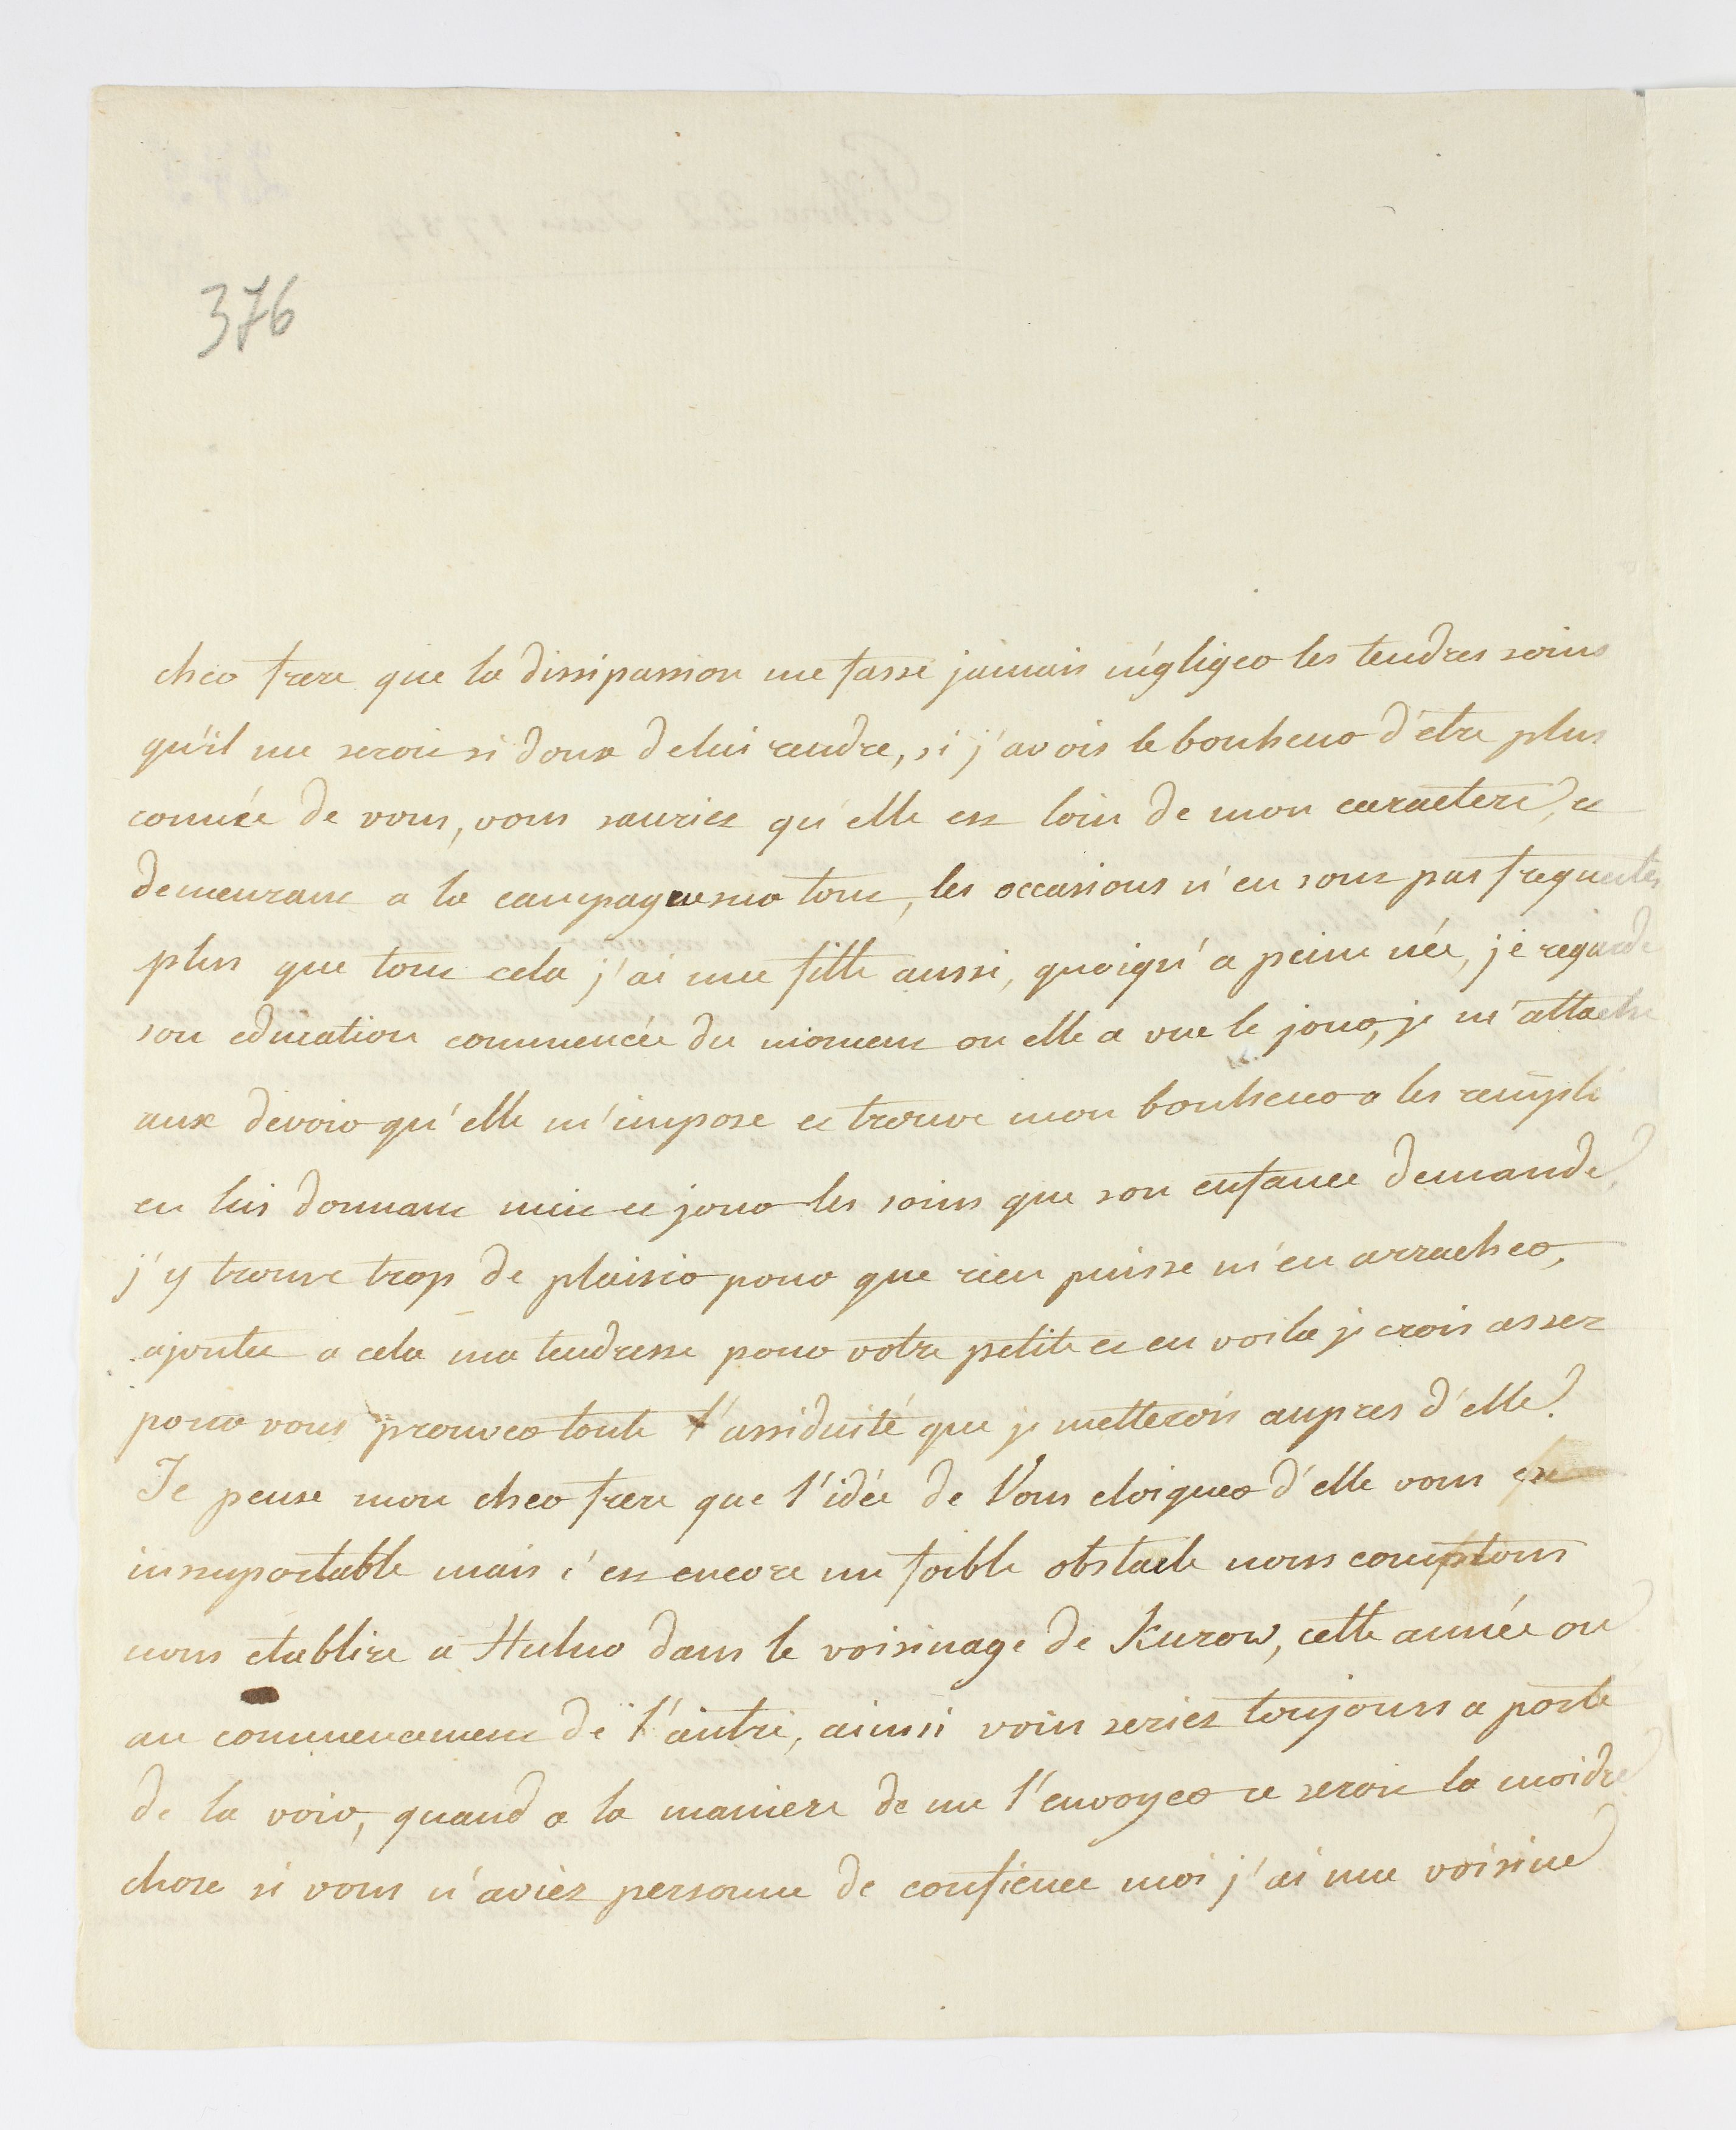 376
cher frere que la dissipassion me fasse jamais négliger les tendres soins
qu'il me seroit si doux de lui rendre, si j'avois le bonheur d'être plus
connüe de vous, vous sauriez qu'elle est loin de mon caractere, et
demeurant a la campagne sur tout, les occasions n'en sont pas frequentes
plus que tout cela j'ai une fille aussi, quoiqu'a peine née, je regarde
son education commencée du moment ou elle a vue le jour, je m'attache
aux devoir qu'elle m'impose et trouve mon bonheur a les remplir
en lui donnant nuit et jour les soins que son enfance demande,
j'y trouve trop de plaisir pour que rien puisse m'en arracher,
ajoutez a cela ma tendresse pour votre petite et en voila je crois assez
pour vous prouver toute l'assiduité que je metterois aupres d'elle.
Je pense mon cher frere que l'idée de Vous eloigner d'elle vous est
insuportable mais c'est encore un foible obstacle nous comptons
nous etablire a dans le voisinage de Kurow, cette année ou
au commencement de l'autre, ainsi vous seriez toujours a porté
de la voir, quand a la maniere de me l'envoyer ce seroit la moidre
chose si vous n'aviez personne de confience moi j'ai une voisine